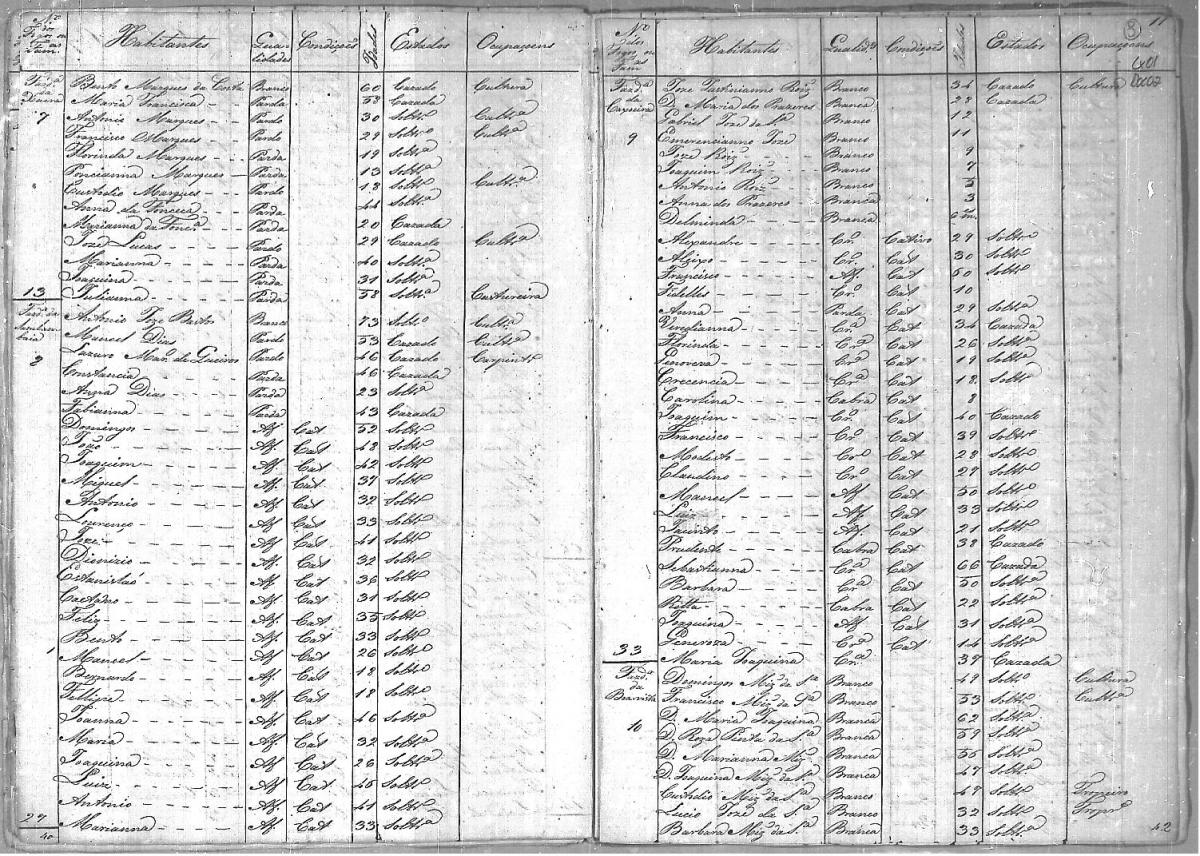 Nº dos Fogos ou Fam. Habitantes Qualidades Condições Idades Estados Ocupaçoens
Fazª da Bento Marques da Costa Branco 60 Cazado Cultura
Maria Francisca Parda 58 Cazada
7 Antonio Marques Pardo 30 Soltrº Cultª
Francisco Marques Pardo 29 Soltrº Cultª
Florinda Marques Parda 19 Soltª
Ponciana Marques Parda 13 Soltª
Custodio Marques Pardo 18 Soltrº Cultª
Anna da Fonceca Parda 44 Soltª
Marianna da Foncª Parda 20 Cazada
Joze Lucas Pardo 29 Cazado Cultª
Marianna Parda 40 Soltª
Joaquina Parda 31 Soltª
13 Julianna Parda 58 Soltª Custureira
Fazª da Antonio Joze Bastos Branco 73 Soltº Cultª
Manoel Dias Pardo 53 Cazado Cultª
8 Lazaro Manº de Queiros Pardo 46 Cazado Carpintº
Constancia Parda 46 Cazada
Anna Dias Parda 23 Soltª
Fabianna Parda 43 Cazada
Domingos Af. Cat 52 Soltrº
João Af. Cat 48 Soltrº
Joaquim Af. Cat 42 Soltrº
Miguel Af. Cat 37 Soltrº
Antonio Af. Cat 32 Soltrº
Lourenço Af. Cat 33 Soltrº
Joze Af. Cat 41 Soltrº
Dionizio Af. Cat 32 Soltrº
Estanisláo Af. Cat 36 Soltrº
Caetano Af. Cat 31 Soltrº
Feliz Af. Cat 35 Soltrº
Bento Af. Cat 33 Soltrº
Manoel Af. Cat 26 Soltrº
Bernardo Af. Cat 18 Soltrº
Fellipe Af. Cat 18 Soltrº
Joanna Af. Cat 46 Soltª
Maria Af. Cat 32 Soltª
Joaquina Af. Cat 26 Soltª
Luiz Af. Cat 45 Soltrº
Antonio Af. Cat 41 Soltrº
27 Marianna Af. Cat 33 Soltª
40
11
8
Nº dos Fogos ou Fam Habitantes Qualidˢ Condições Idades Estados Ocupaçoens
Fazdª da Joze Justinianno Roiz Branco 34 Cazado Cultura
D. Maria dos Prazeres Branca 28 Cazada
Gabriel Joze da Sª Branco 12
9 Emerencianno Joze Branco 11
Joze Roiz Branco 9
Joaquim Roiz Branco 7
Antonio Roiz Branco 5
Anna dos Prazeres Branca 3
Delminda Branca 6 m.
Alexandre Crº Cativo 29 Soltrº
Aleixo Crº Cat 30 Soltrº
Francisco Af. Cat 50 Soltrº
Fidelles Crº Cat 10
Anna Parda Cat 29 Soltª
Veredianna Crª Cat 34 Cazada
Florinda Crª Cat 26 Soltª
Genoveva Crª Cat 19 Soltª
Crecencia Crª Cat 18 Soltª
Carolina Cabra Cat 8
Joaquim Crº Cat 40 Cazado
Francisco Crº Cat 39 Soltrº
Modesto Crº Cat 28 Soltrº
Claudino Crº Cat 27 Soltrº
Manoel Af. Cat 50 Soltrº
Luiz Af. Cat 33 Soltrº
Jacinto Af. Cat 21 Soltrº
Prudente Cabra Cat 38 Cazado
Sebastianna Crª Cat 66 Cazada
Barbara Crª Cat 50 Soltª
Ritta Cabra Cat 22 Soltª
Joaquina Af. Cat 31 Soltª
Generoza Crª Cat 14 Soltª
33 Maria Joaquina Crª 39 Cazada
Fazdª da Domingos Miz da Sª Branco 49 Soltº Cultura
Francisco Miz da Sª Branco 53 Soltº Cultª
10 D. Maria Joaquina Branca 62 Soltª
D. Roza Pinta da Sª Branca 59 Soltª
D. Marianna Miz Branca 55 Soltª
D. Joaquina Miz da Sª Branca 47 Soltª
Custodio Miz da Sª Branco 47 Soltrº Tropeiro
Lucio Joze da Sª Branco 32 Soltrº Troprº
Barbara Miz da Sª Branca 33 Soltª
42